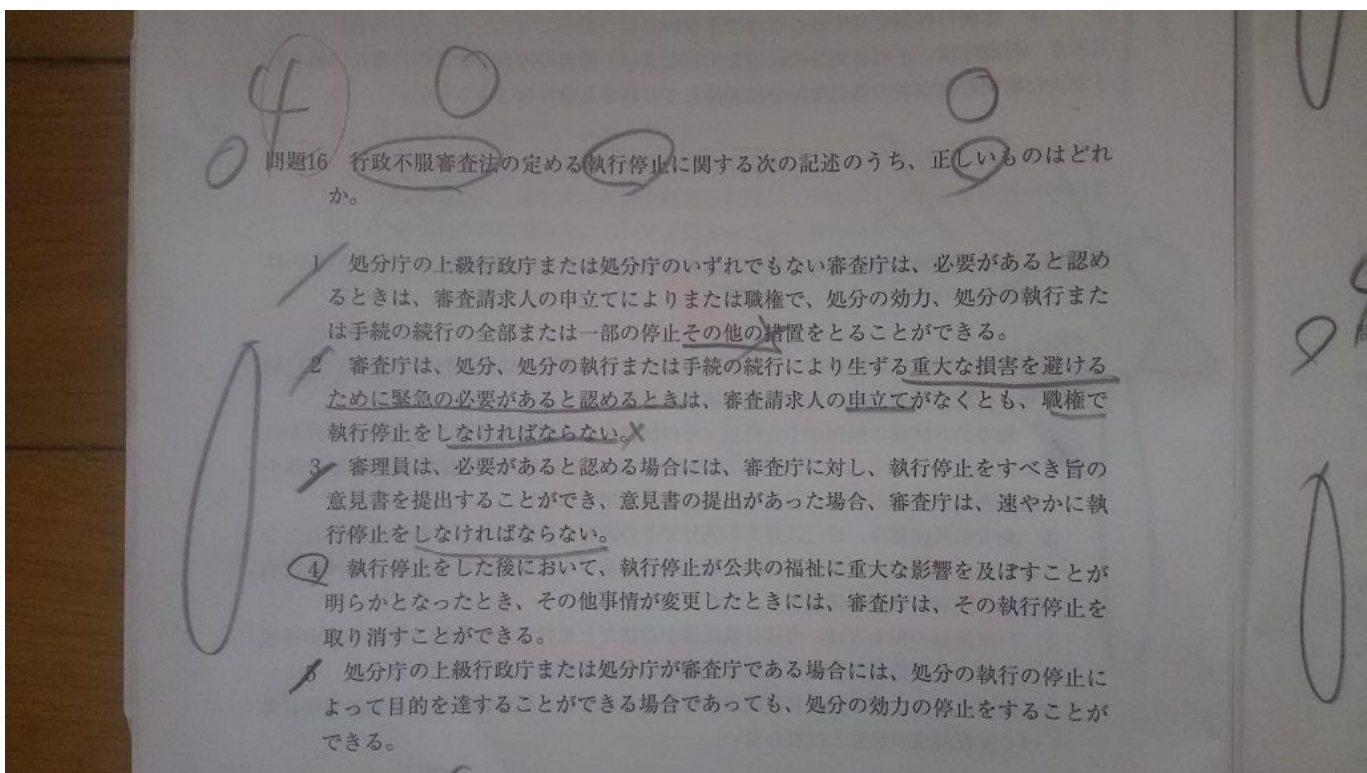 4
問題16 行政不服審査法の定める執行停止に関する次の記述のうち、正しいものはどれ
か。
1 処分庁の上級行政庁または処分庁のいずれでもない審査庁は、必要があると認め
るときは、審査請求人の申立てによりまたは職権で、処分の効力、処分の執行また
は手続の続行の全部または一部の停止その他の措置をとることができる。
2 審査庁は、処分、処分の執行または手続の続行により生ずる重大な損害を避ける
ために緊急の必要があると認めるときは、審査請求人の申立てがなくとも、職権で
執行停止をしなければならない。
3 審理員は、必要があると認める場合には、審査庁に対し、執行停止をすべき旨の
意見書を提出することができ、意見書の提出があった場合、審査庁は、速やかに執
行停止をしなければならない。
4 執行停止をした後において、執行停止が公共の福祉に重大な影響を及ぼすことが
明らかとなったとき、その他事情が変更したときには、審査庁は、その執行停止を
取り消すことができる。
5 処分庁の上級行政庁または処分庁が審査庁である場合には、処分の執行の停止に
よって目的を達することができる場合であっても、処分の効力の停止をすることが
できる。